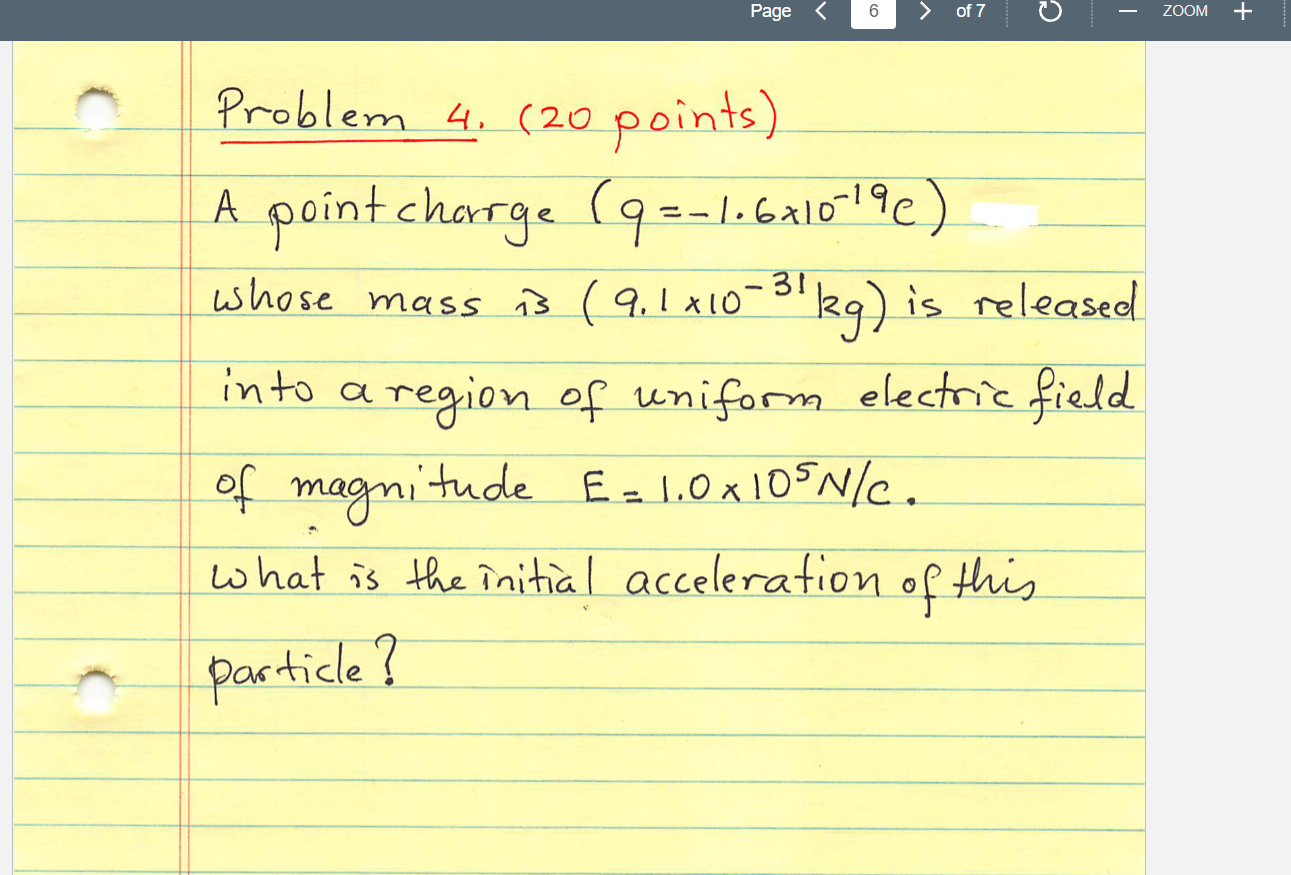 Page < 6 > of 7 ZOOM +
Problem 4. (20 points)
A point charge (q = -1.6x10⁻¹⁹C)
whose mass is (9.1x10⁻³¹kg) is released
into a region of uniform electric field
of magnitude E = 1.0 x 10⁵ N/C.
What is the initial acceleration of this
particle?